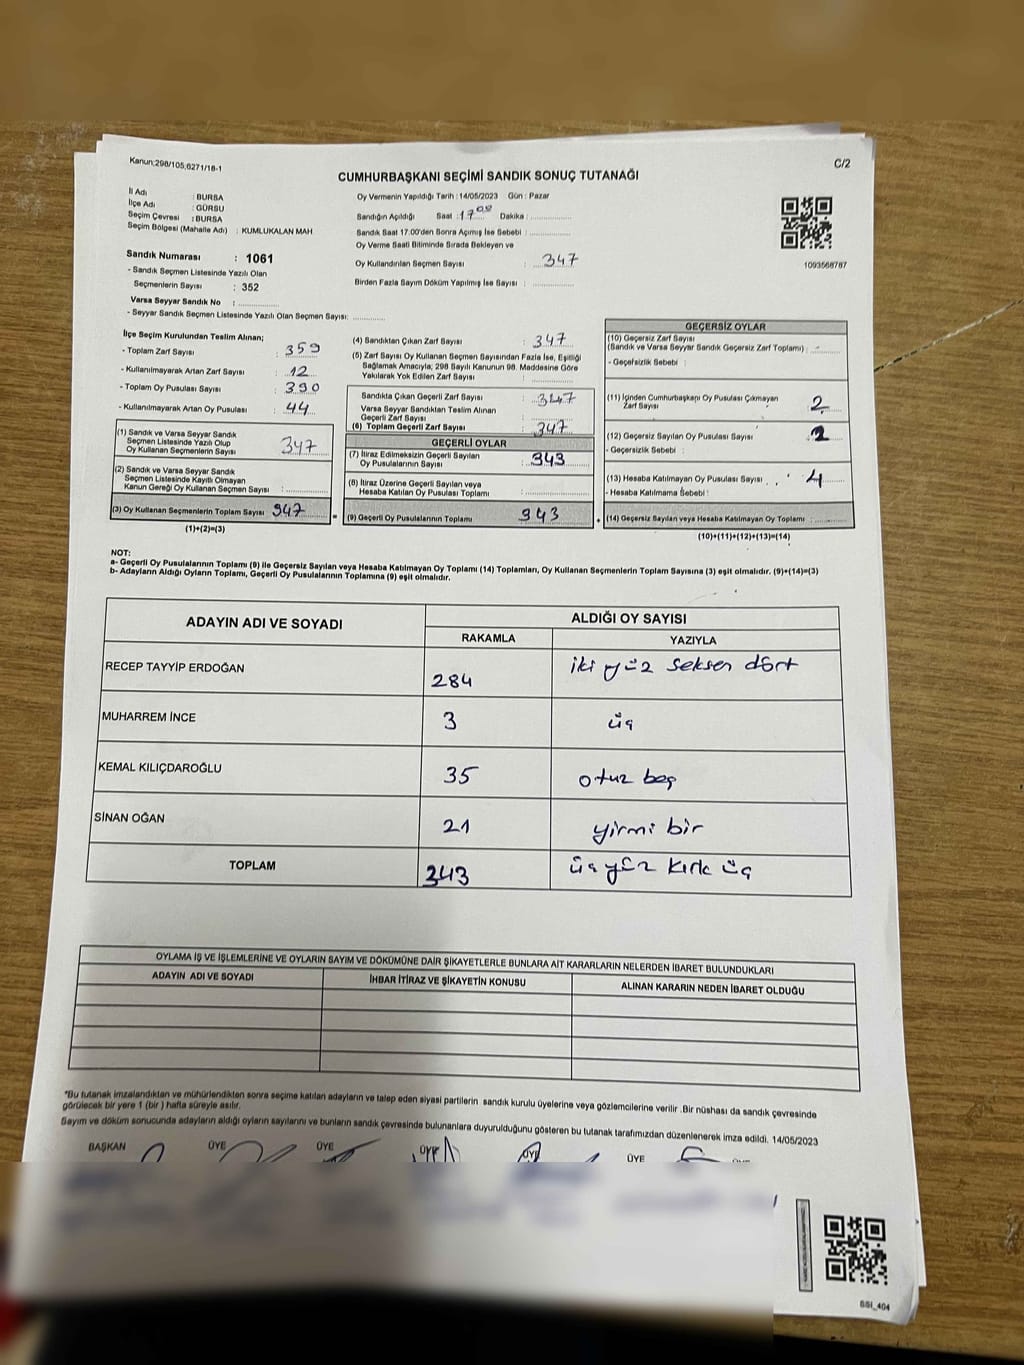 Kanun;298/105;6271/18-1
C/2
CUMHURBAŞKANI SEÇİMİ SANDIK SONUÇ TUTANAĞI
İl Adı : BURSA
İlçe Adı : GÜRSU
Seçim Çevresi : BURSA
Seçim Bölgesi (Mahalle Adı) : KUMLUKALAN MAH
Sandık Numarası : 1061
- Sandık Seçmen Listesinde Yazılı Olan
Seçmenlerin Sayısı : 352
Varsa Seyyar Sandık No :
- Seyyar Sandık Seçmen Listesinde Yazılı Olan Seçmen Sayısı:
Oy Vermenin Yapıldığı Tarih : 14/05/2023 Gün : Pazar
Sandığın Açıldığı Saat : 17 00 Dakika :
Sandık Saat 17.00'den Sonra Açımış İse Sebebi :
Oy Verme Saati Bitiminde Sırada Bekleyen ve
Oy Kullandırılan Seçmen Sayısı : 347
Birden Fazla Sayım Döküm Yapılmış İse Sayısı :
1093568787
İlçe Seçim Kurulundan Teslim Alınan;
- Toplam Zarf Sayısı : 359
- Kullanılmayarak Artan Zarf Sayısı : 12
- Toplam Oy Pusulası Sayısı : 390
- Kullanılmayarak Artan Oy Pusulası : 44
(1) Sandık ve Varsa Seyyar Sandık
Seçmen Listesinde Yazılı Olup
Oy Kullanan Seçmenlerin Sayısı : 347
(2) Sandık ve Varsa Seyyar Sandık
Seçmen Listesinde Kayıtlı Olmayan
Kanun Gereği Oy Kullanan Seçmen Sayısı :
(3) Oy Kullanan Seçmenlerin Toplam Sayısı 347
(1)+(2)=(3)
(4) Sandıktan Çıkan Zarf Sayısı : 347
(5) Zarf Sayısı Oy Kullanan Seçmen Sayısından Fazla İse, Eşitliği
Sağlamak Amacıyla; 298 Sayılı Kanunun 98. Maddesine Göre
Yakılarak Yok Edilen Zarf Sayısı :
Sandıkta Çıkan Geçerli Zarf Sayısı : 347
Varsa Seyyar Sandıktan Teslim Alınan
Geçerli Zarf Sayısı :
(6) Toplam Geçerli Zarf Sayısı : 347
GEÇERLİ OYLAR
(7) İtiraz Edilmeksizin Geçerli Sayılan
Oy Pusulalarının Sayısı : 343
(8) İtiraz Üzerine Geçerli Sayılan veya
Hesaba Katılan Oy Pusulası Toplamı :
(9) Geçerli Oy Pusulalarının Toplamı 343
GEÇERSİZ OYLAR
(10) Geçersiz Zarf Sayısı
(Sandık ve Varsa Seyyar Sandık Geçersiz Zarf Toplamı) : -
- Geçersizlik Sebebi :
(11) İçinden Cumhurbaşkanı Oy Pusulası Çıkmayan
Zarf Sayısı 2
(12) Geçersiz Sayılan Oy Pusulası Sayısı : 2
- Geçersizlik Sebebi :
(13) Hesaba Katılmayan Oy Pusulası Sayısı : 4
- Hesaba Katılmama Sebebi :
(14) Geçersiz Sayılan veya Hesaba Katılmayan Oy Toplamı :
(10)+(11)+(12)+(13)=(14)
NOT:
a- Geçerli Oy Pusulalarının Toplamı (9) ile Geçersiz Sayılan veya Hesaba Katılmayan Oy Toplamı (14) Toplamları, Oy Kullanan Seçmenlerin Toplam Sayısına (3) eşit olmalıdır. (9)+(14)=(3)
b- Adayların Aldığı Oyların Toplamı, Geçerli Oy Pusulalarının Toplamına (9) eşit olmalıdır.
ADAYIN ADI VE SOYADI ALDIĞI OY SAYISI
RAKAMLA YAZIYLA
RECEP TAYYİP ERDOĞAN 284 iki yüz seksen dört
MUHARREM İNCE 3 üç
KEMAL KILIÇDAROĞLU 35 otuz beş
SİNAN OĞAN 21 yirmi bir
TOPLAM 343 üç yüz kırk üç
OYLAMA İŞ VE İŞLEMLERİNE VE OYLARIN SAYIM VE DÖKÜMÜNE DAİR ŞİKAYETLERLE BUNLARA AİT KARARLARIN NELERDEN İBARET BULUNDUKLARI
ADAYIN ADI VE SOYADI İHBAR İTİRAZ VE ŞİKAYETİN KONUSU ALINAN KARARIN NEDEN İBARET OLDUĞU
*Bu tutanak imzalandıktan ve mühürlendikten sonra seçime katılan adayların ve talep eden siyasi partilerin sandık kurulu üyelerine veya gözlemcilerine verilir .Bir nüshası da sandık çevresinde
görülecek bir yere 1 (bir ) hafta süreyle asılır.
Sayım ve döküm sonucunda adayların aldığı oyların sayılarını ve bunların sandık çevresinde bulunanlara duyurulduğunu gösteren bu tutanak tarafımızdan düzenlenerek imza edildi. 14/05/2023
BAŞKAN ÜYE ÜYE ÜYE ÜYE ÜYE
SSI_404